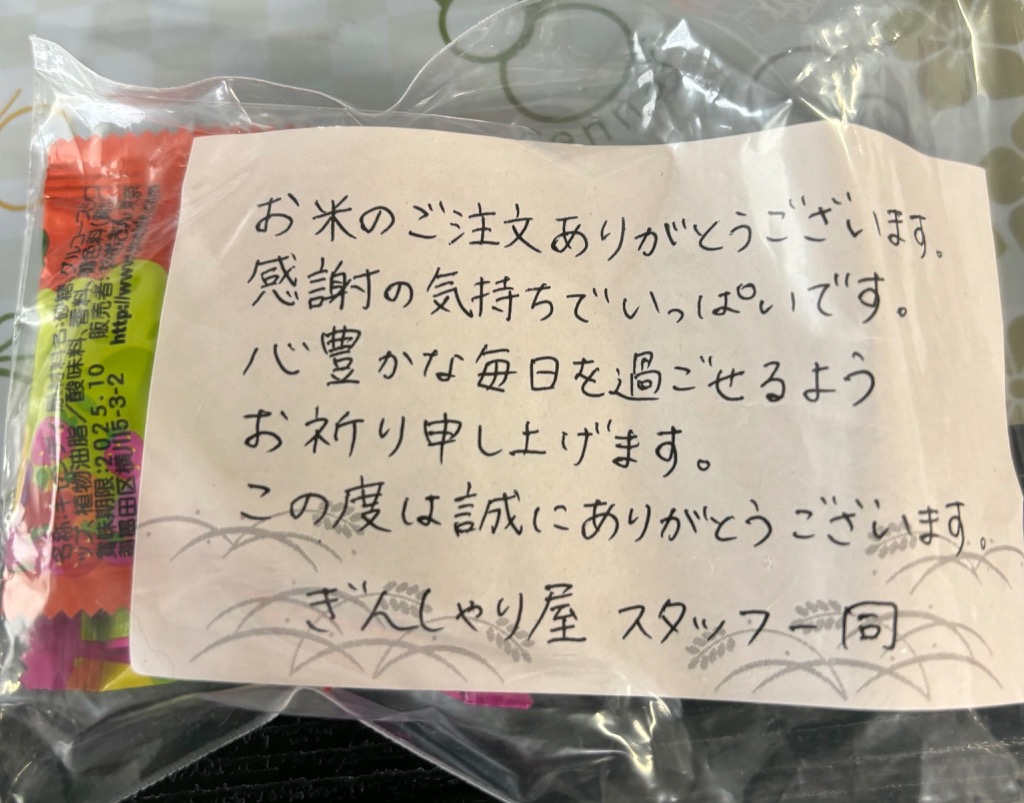 お米のご注文ありがとうございます。
感謝の気持ちでいっぱいです。
心豊かな毎日を過ごせるよう
お祈り申し上げます。
この度は誠にありがとうございます。
ぎんしゃり屋 スタッフ一同
名称:キャンデー
ップ、植物油脂/酸味料、香料、着色料
賞味期限:2025.10 販売者
墨田区横川5-3-2 http://www.